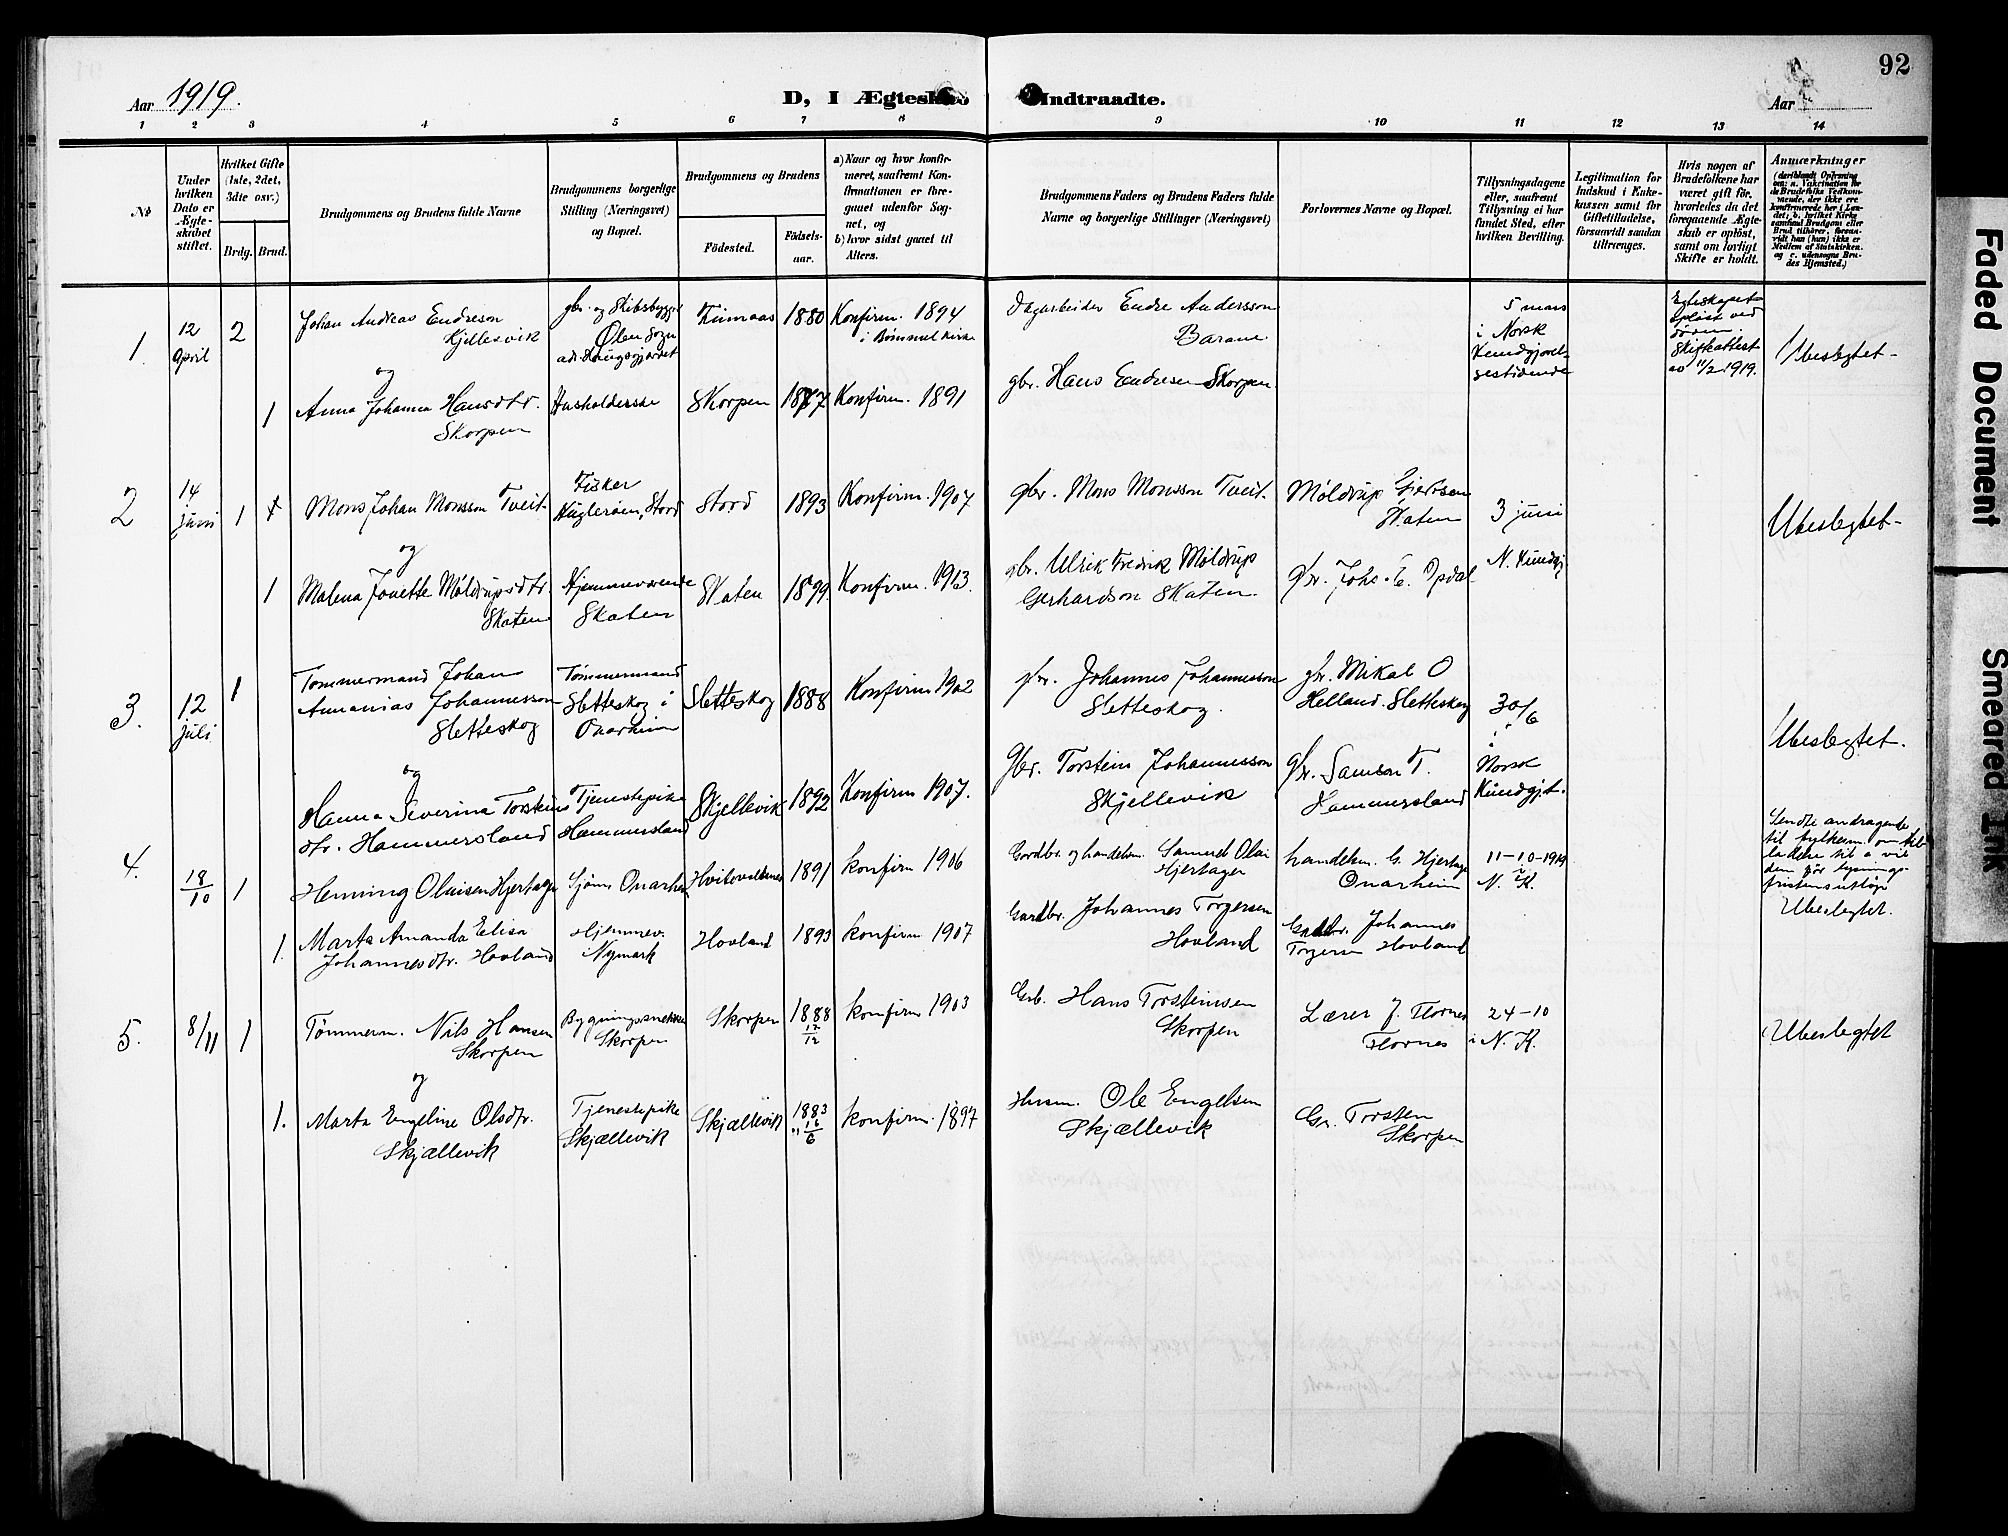 92
Aar 1919.
D, I Ægteska
Indtraadte.
Aar
1 2 3 4 5 6 7 8 9 10 11 12 13 14
№
Under hvilken Dato er Ægteskabet stiftet.
Hvilket Gifte (1ste, 2det, 3die osv.)
Brdg. Brud.
Brudgommens og Brudens fulde Navne
Brudgommens borgerlige Stilling (Næringsvei) og Bopæl.
Brudgommens og Brudens
Födested.
Födsels-aar.
a) Naar og hvor konfirmeret, saafremt Konfirmationen er foregaaet udenfor Sognet, og
b) hvor sidst gaaet til Alters.
Brudgommens Faders og Brudens Faders fulde Navne og borgerlige Stillinger (Næringsvei)
Forlovernes Navne og Bopæl.
Tillysningsdagene eller, saafremt Tillysning ei har fundet Sted, efter hvilken Bevilling.
Legitimation for Indskud i Enkekassen samt for Giftetilladelse, forsaavidt saadan tiltrænges.
Hvis nogen af Brudefolkene har været gift för, hvorledes da det foregaaende Ægteskab er oplöst, samt om lovligt Skifte er holdt.
Anmærkninger
1.
12 April
2
Johan Andreas Endreson Kjellesvik
gbr. og Skibsbygg. Ølen Sogn
1880
Konfirm. 1894 i Bømmel kirke
Dagarbeider Endre Anderssen
5 mars i Norsk Kundgjørelsestidende
Egteskapet opløst ved døden. Skifteattest av 11/2-1919.
Ubeslegtet-
og
1
Anna Johanna Hansdtr. Skorpen
Husholderske
Skorpen
1877
Konfirm. 1891
gbr. Hans Endresen Skorpen
2
14 juni
1
Mons Johan Monsson Tveit
Fisker
Stord
Stord
1893
Konfirm. 1907
gbr. Mons Monsson Tveit.
Møldrup Gjertsen Skaten
3 juni
N. Kundgj
Ubeslegtet-
og
1
Malena Jonette Møldrupsdtr. Skaten
Hjemmeværende Skaten
Skaten
1899
Konfirm. 1913.
gbr. Ulrik Fredrik Møldrup Gerhardson Skaten.
gbr. Johs. E. Opdal
3.
12 juli
1
Tømmermand Johan Annanias Johannesson Sletteskog
Tømmermand Sletteskog i Onarheim
Sletteskog
1888
Konfirm 1902
gbr. Johannes Johannesson Sletteskog.
gbr. Mikal O Helland. Sletteskog
30/6 i Norsk Kundgjt.
Ubeslegtet.
og
Hanna Severina Torsteinsdtr. Hammersland
Tjenestepike Hammersland
Skjellevik
1892
Konfirm 1907.
Gbr. Torstein Johannesson Skjellevik
gbr. Samson T. Hammersland
4.
18/10
1
Henning Oluisen Hjertager
Sjøm. Onarheim
1891
konfirm 1906
Gardbr. og handelsm. Samuel Olai Hjertager
handelsm. G. Hjertager Onarheim
11-10-1919 i N. K.
Sendte andragende
Ubeslegtet.
1.
Marta Amanda Elisa Johannesdtr. Hovland
Hjemmev. Nymark
Hovland
1893
konfirm 1907
Gardbr. Johannes Torgersen Hovland
Gardbr. Johannes Torgersen Hovland
5.
8/11
1
Tømmerm. Nils Hansen Skorpen
Bygningssnekker Skorpen
Skorpen
1888 17/12
konfirm 1903
Grb. Hans Torsteinsen Skorpen
Lærer J. Flornes Flornes
24-10 i N. K.
Ubeslegtet
og
1.
Marta Engeline Olsdtr. Skjællevik
Tjenestepike Skjællevik
Skjællevik
1883 16/6
konfirm. 1897
Husm. Ole Engelsen Skjællevik
Gr. Torsten Skorpen
Faded Document
Smeared Ink